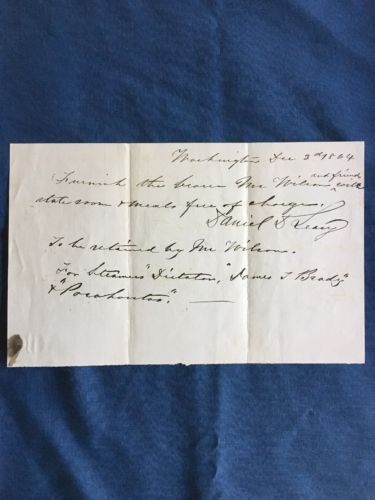 Washington Dec 2nd 1864
Furnish the bearer Mr Wilson and friend with
state room & meals free of charges.
Daniel D Leary
To be retained by Mr Wilson.
For Steamers "Dictator," "James T Brady"
& "Pocahontas."